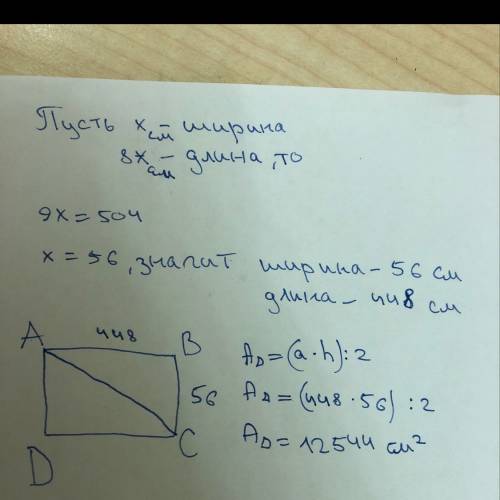 Пусть x см – ширина
8x см – длина, то
9x = 504
x = 56, значит ширина – 56 см
длина – 448 см
A 448 B
56
D C
A∆ = (a · h) : 2
A∆ = (448 · 56) : 2
A∆ = 12544 см²